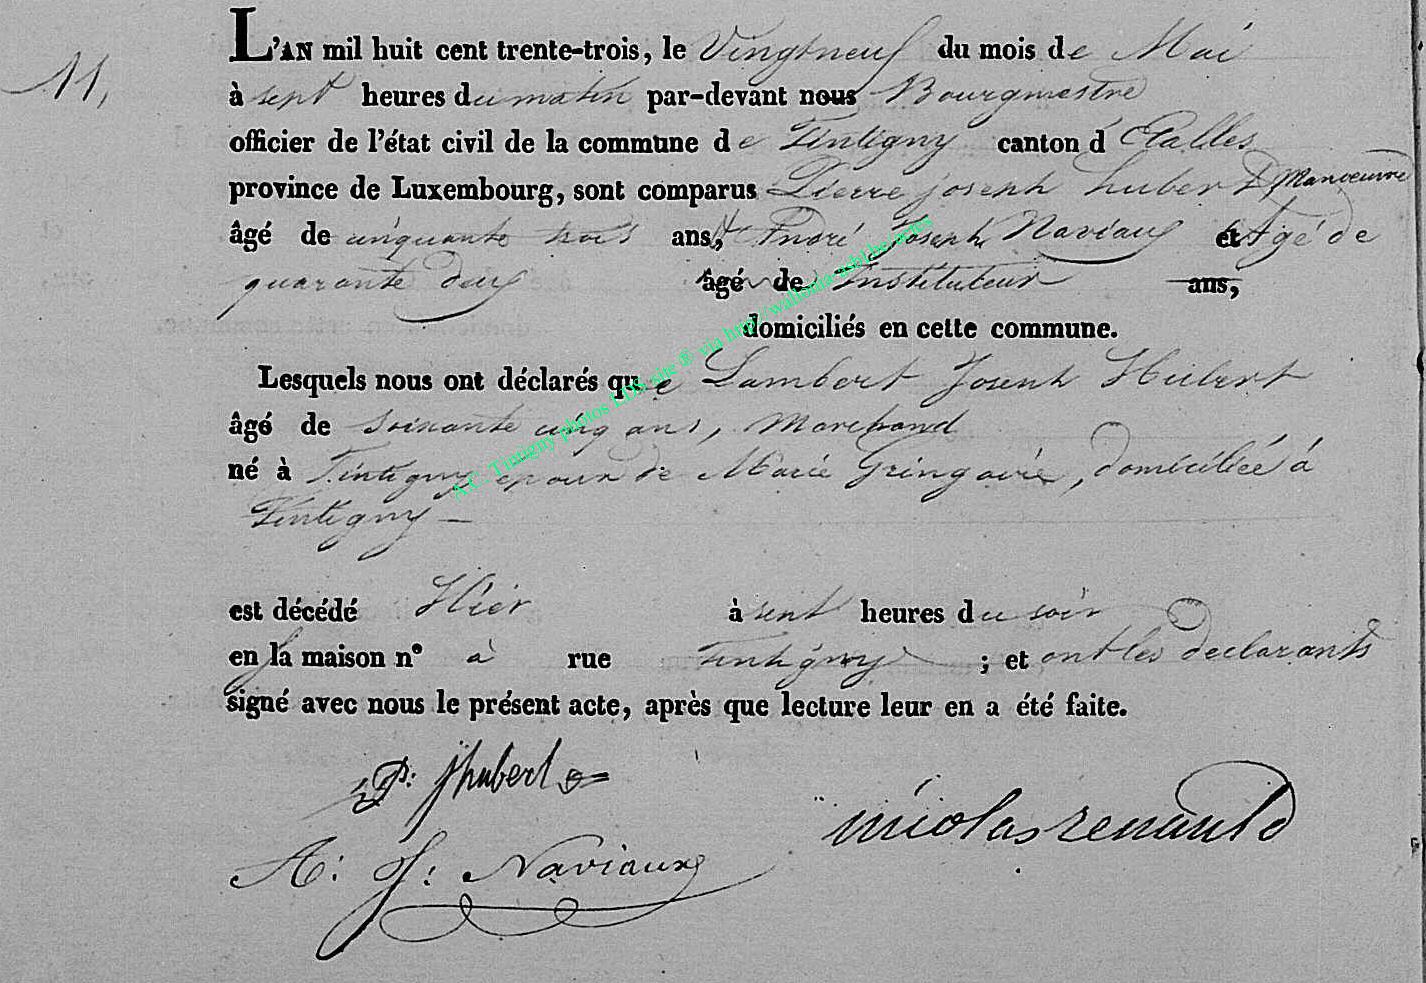 L'AN mil huit cent trente-trois, le Vingtneuf du mois de Mai
11,
à sept heures du matin par-devant nous Bourgmestre
officier de l'état civil de la commune de Tintigny canton d'Etalles
province de Luxembourg, sont comparus Pierre joseph hubert Manoeuvre
âgé de cinquante trois ans, et André Joseph Naviaux et Agé de
quarante deux âgé de Instituteur ans,
domiciliés en cette commune.
Lesquels nous ont déclarés que Lambert Joseph Hubert
âgé de soixante cinq ans, Marchand
né à Tintigny epoux de Marie Gringoire, domiciliéé à
Tintigny —
est décédé Hier à sept heures du soir
en la maison n° à rue Tintigny ; et ont les declarants
signé avec nous le présent acte, après que lecture leur en a été faite.
P: j hubert
nicolas renauld
A: J: Naviaux
A.C. Tintigny photos LDS site ® via http://wallonia-asbl.be/actes